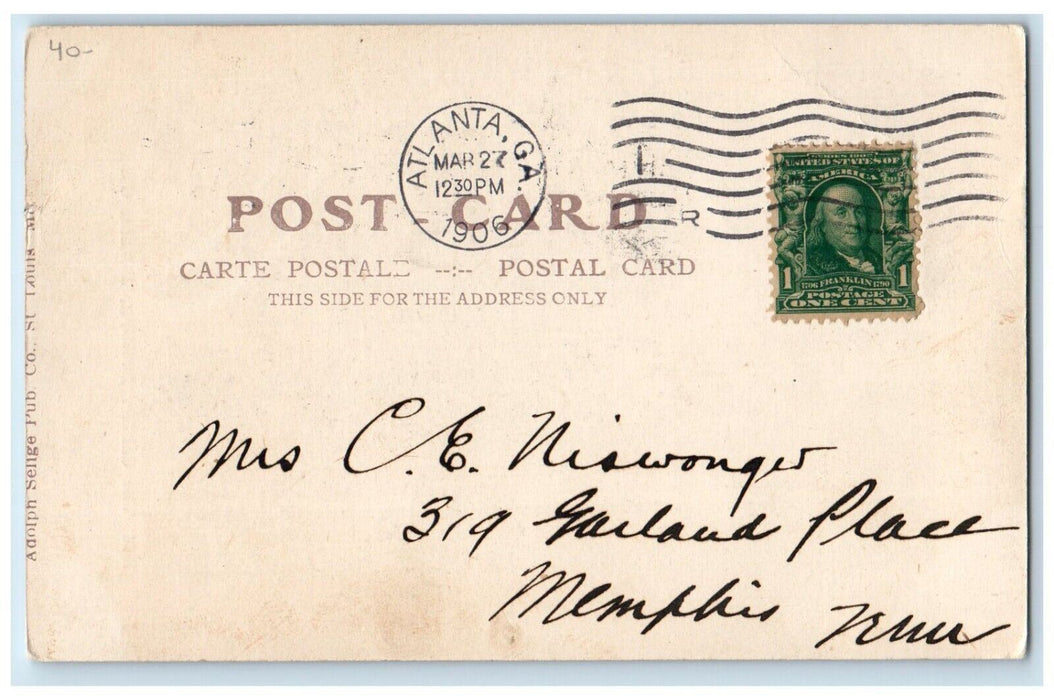 40-
ATLANTA, GA.
MAR 27
12 30 PM
1906
UNITED STATES OF
AMERICA
1 1
1706 FRANKLIN 1790
POSTAGE
ONE CENT
POST-CARD
CARTE POSTALE --:-- POSTAL CARD
THIS SIDE FOR THE ADDRESS ONLY
Adolph Selige Pub Co., St Louis
Mrs C. E. Niswonger
319 Garland Place
Memphis Tenn